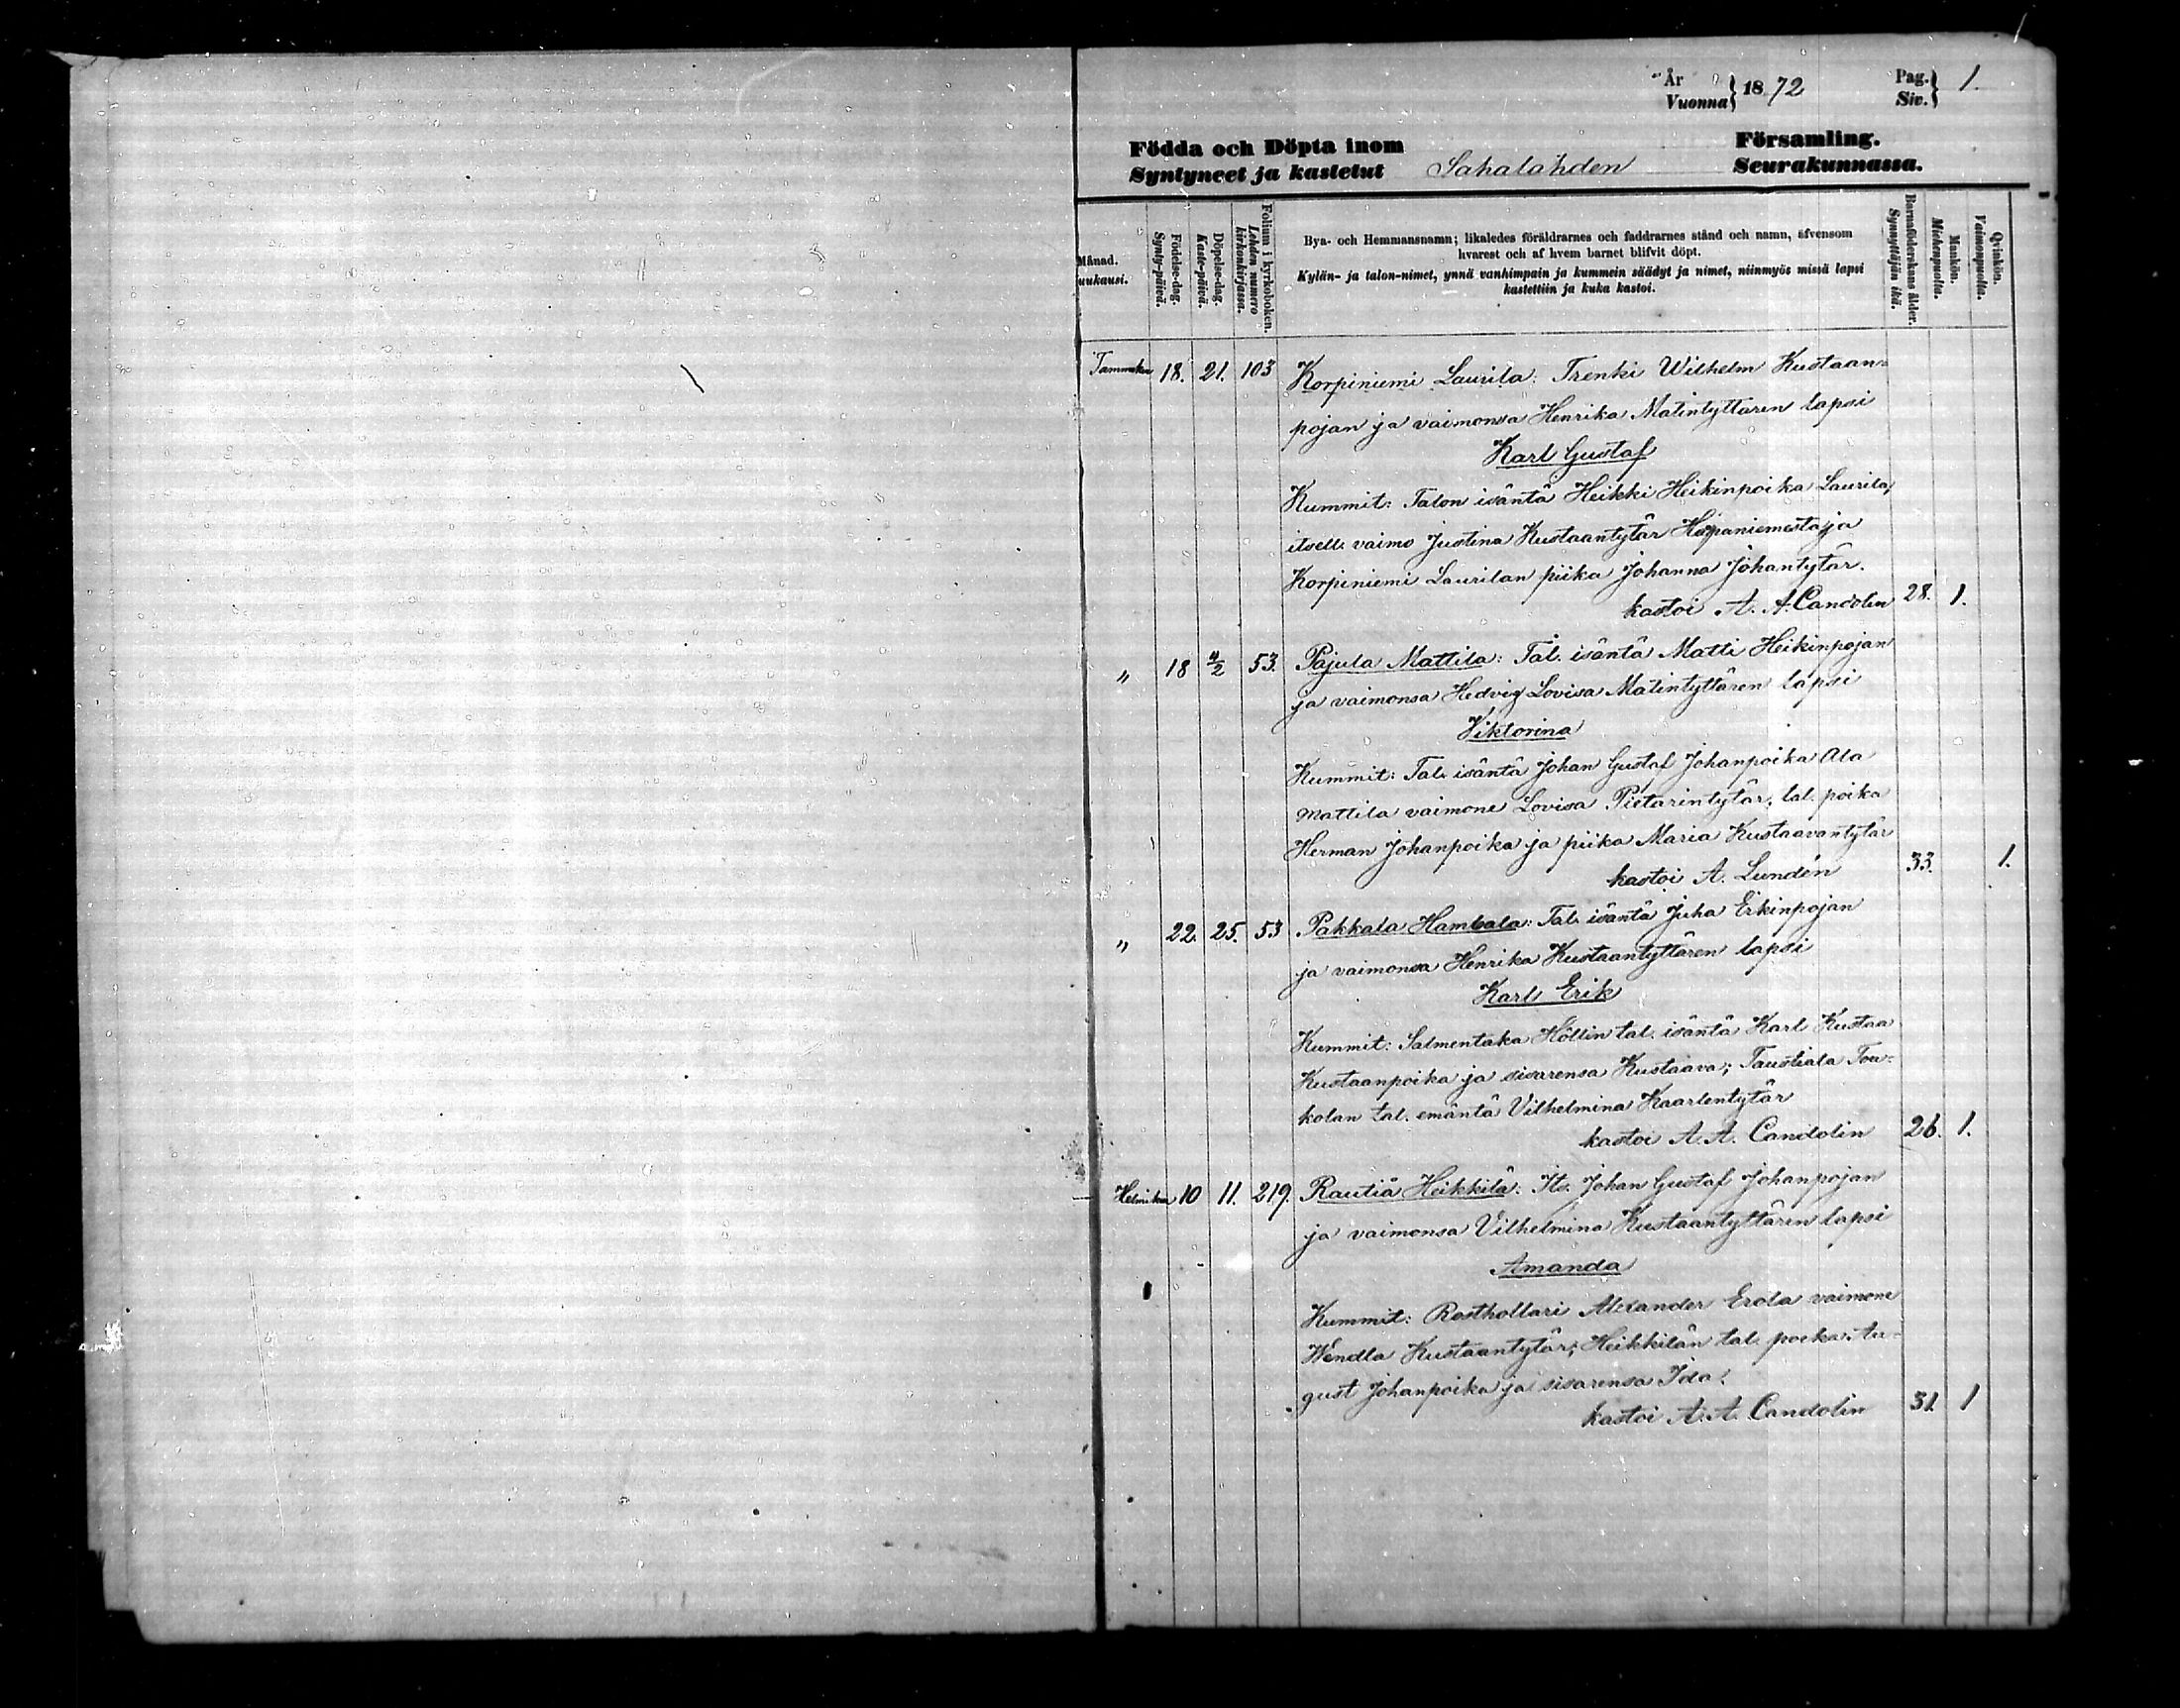 År
Vuonna } 1872 Pag.
Siv. } 1.
Födda och Döpta inom Församling.
Syntyneet ja kastetut Sahalahden Seurakunnassa.
Månad.
uukausi.
Födelse-dag.
Synty-päivä.
Döpelse-dag.
Kaste-päivä.
Folium i kyrkoboken.
Lehden numero
kirkonkirjassa.
Bya- och Hemmansnamn; likaledes föräldrarnes och faddrarnes stånd och namn, äfvensom
hvarest och af hvem barnet blifvit döpt.
Kylän- ja talon-nimet, ynnä vanhimpain ja kummein säädyt ja nimet, niinmyös missä lapsi
kastettiin ja kuka kastoi.
Barnaföderskans ålder.
Synnyttäjän ikä.
Mankön.
Miehenpuolta.
Qvinkön.
Vaimonpuolta.
Tammiku 18. 21. 103 Korpiniemi Laurila: Trenki Wilhelm Kustaan-
pojan ja vaimonsa Henrika Matintyttären lapsi
Karl Gustaf
Kummit: Talon isäntä Heikki Heikinpoika Laurila,
itsell. vaimo Justina Kustaantytär ja
Korpiniemi Laurilan piika Johanna Johantytär.
kastoi A. A. Candolin 28. 1.
" 18 4/2 53. Pajula Mattila: Tal. isäntä Matti Heikinpojan
ja vaimonsa Hedvig Lovisa Matintyttären lapsi
Viktorina
Kummit: Tal. isäntä Johan Gustaf Johanpoika Ala
mattila vaimone Lovisa Pietarintytär, tal. poika
Herman Johanpoika ja piika Maria Kustaavantytär
kastoi A. Lundén 33. 1.
" 22. 25. 53 Pakkala Hambala: Tal. isäntä Juha Erkinpojan
ja vaimonsa Henrika Kustaantyttären lapsi
Karl Erik
Kummit: Salmentaka Höllin tal. isäntä Karl Kustaa
Kustaanpoika ja sisarensa Kustaava; Taustiala Tou-
kolan tal. emäntä Vilhelmina Kaarlentytär
kastoi A. A. Candolin 26. 1.
Helmikuu 10 11. 219. Rautiä Heikkilä: Its. Johan Gustaf Johanpojan
ja vaimonsa Vilhelmina Kustaantyttären lapsi
Amanda
Kummit: Rosthollari Alexander Erola vaimone
Wendla Kustaantytär; Heikkilän tal. poeka Au-
gust Johanpoika ja sisarensa Ida.
kastoi A. A. Candolin 31. 1